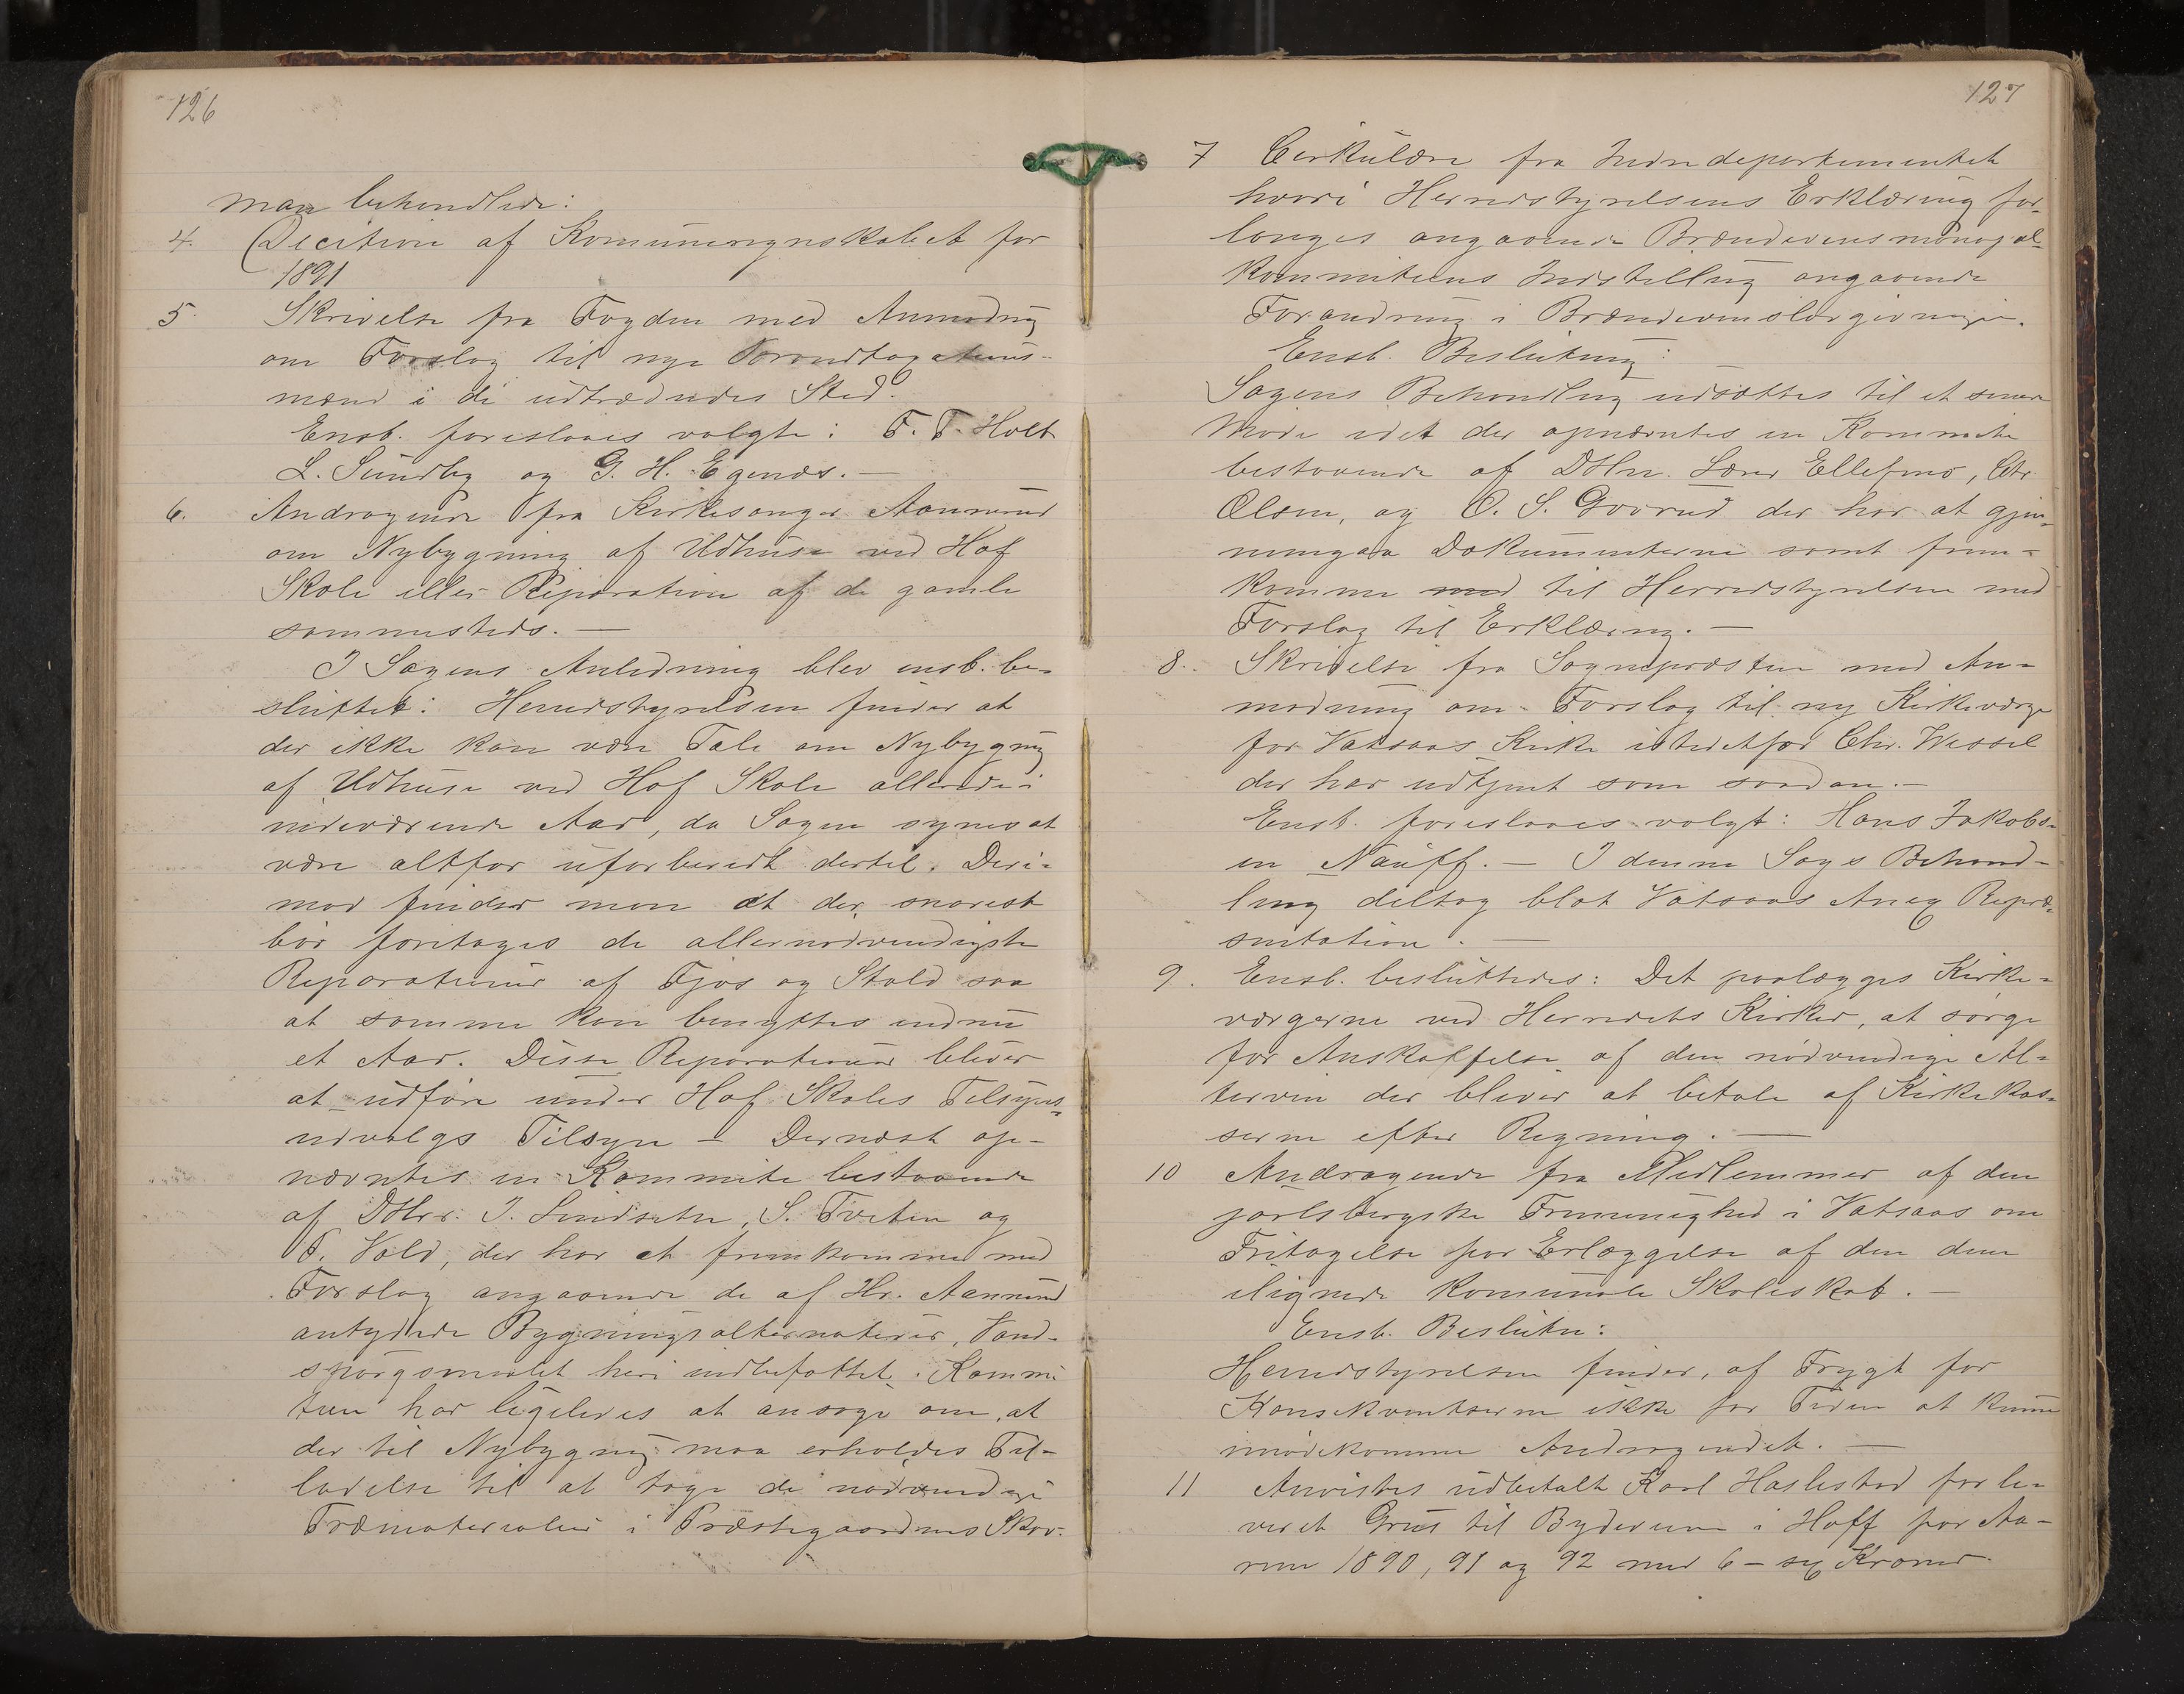 126
man behandlede:
4. Decition af Kommuneregnskabet for
1891
5. Skrivelse fra Fogden med Anmodning
om Forslag til nye Brandtaxations-
mænd i de udtrædendes Sted.
Ensb. foreslaaes valgte: F. F. Holt
L. Sundby og G. H. Egenæs. —
6. Andragende fra Kirkesanger Aannerud
om Nybygning af Udhuse ved Hof
Skole eller Reparation af de gamle
sammesteds. —
I Sagens Anledning blev ensb. be-
sluttet: Herredstyrelsen finder at
der ikke kan være Tale om Nybygning
af Udhuse ved Hof Skole allerede i
indeværende Aar, da Sagen synes at
være altfor uforberedt dertil. Deri-
mod finder man at der snarest
bør foretages de allernødvendigste
Reparationer af Fjøs og Stald saa
at samme kan benyttes endnu
et Aar. Disse Reparationer bliver
at udføre under Hof Skoles Tilsyns-
udvalgs Tilsyn — Dernæst op-
nævntes en Kommite bestaaende
af DHrr. J. Lindseter, S. Tveten og
T. Vold, der har at fremkomme med
Forslag angaaende de af Hr. Aannerud
antydede Bygningsalternativer, Vand-
spørgsmaalet heri indbefattet. Kommi
teen har ligeledes at ansøge om, at
der til Nybygning maa erholdes Til-
ladelse til at tage de nødvendige
Træmaterialier i Præstegaardens Skov.
127
7 Cirkulære fra Indredepartementet
hvori Herredstyrelsens Erklæring for-
langes angaaende Brændevinsmonopol-
kommiteens Indstilling angaaende
Forandring i Brændevinslovgivningen.
Ensb. Beslutning:
Sagens Behandling udsættes til et senere
Møde idet der opnævntes en Kommite
bestaaende af DHrr. Lars Ellefsmo, Chr.
Olsen, og O. S. Gvorud der har at gjen-
nemgaa Dokumenterne samt frem-
komme med til Herredstyrelsen med
Forslag til Erklæring. —
8. Skrivelse fra Sognepræsten med An-
modning om Forslag til ny Kirkeværge
for Vatsaas Kirke istedetfor Chr. Wessel
der har udtjent som saadan. —
Ensb. foreslaaes valgt: Hans Jakobs-
en Nauff. — I denne Sags Behand-
ling deltog blot Vatsaas Anex Repræ-
sentation. —
9. Ensb. besluttedes: Det paalægges Kirke-
værgerne ved Herredets Kirker, at sørge
for Anskaffelse af den nødvendige Al-
tervin der bliver at betale af Kirkekas-
serne efter Regning. —
10 Andragende fra Medlemmer af den
jarlsbergske Frimenighed i Vatsaas om
Fritagelse for Erlæggelse af den dem
ilignede kommunale Skoleskat. —
Ensb. Beslutn:
Herredstyrelsen finder, af Frygt for
Konsekventserne ikke for Tiden at kunne
imødekomme Andragendet. —
11 Anvistes udbetalt Karl Haslestad for le-
veret Grus til Bydeveiene i Hoff for Aa-
rene 1890, 91 og 92 med 6 — sex Kroner